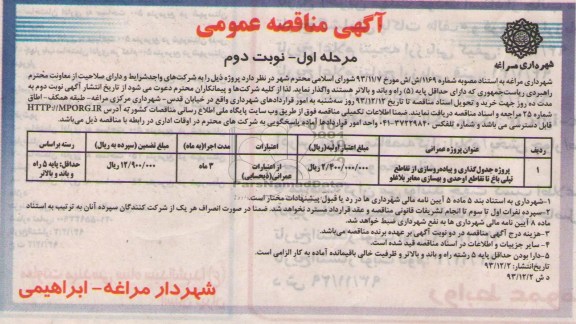 آگهی مناقصه عمومی
مرحله اول- نوبت دوم
شهرداری مراغه
شهرداری مراغه به استناد مصوبه شماره ۱۱۶۹/ش/ش مورخ ۹۳/۱۱/۷ شورای اسلامی محترم شهر در نظر دارد پروژه ذیل را به شرکت‌های واجدشرایط و دارای صلاحیت از معاونت محترم
راهبردی ریاست‌جمهوری که دارای حداقل پایه (۵) راه و باند و بالاتر هستند واگذار نماید. لذا از کلیه شرکت‌ها و پیمانکاران محترم دعوت می شود از تاریخ انتشار آگهی نوبت دوم به
مدت ده روز جهت خرید و تحویل اسناد مناقصه تا تاریخ ۹۳/۱۲/۱۲ روز سه‌شنبه به امور قراردادهای شهرداری واقع در خیابان قدس- شهرداری مرکزی مراغه- طبقه همکف- اطاق
شماره ۲۵ مراجعه و اسناد مناقصه دریافت نمایند. ضمنا اطلاعات تکمیلی مناقصه فوق از طریق وب سایت پایگاه ملی اطلاع رسانی مناقصات کشور به آدرس HTTP://MPORG.IR
قابل دسترسی می باشد و شماره تلفکس ۳۷۲۲۹۸۴۰-۰۴۱ واحد امور قراردادها آماده پاسخگویی به شرکت های محترم در اوقات اداری در رابطه با مناقصه ذیل می‌باشد.
ردیف عنوان پروژه عمرانی مبلغ اعتبار اولیه(ریال) اعتبارات مدت اجرا(به ماه) مبلغ تضمین (سپرده به ریال) رسته بر اساس
۱ پروژه جدول‌گذاری و پیاده‌روسازی از تقاطع ۲/۴۰۰/۰۰۰/۰۰۰ از اعتبارات ۳ ماه ۱۲/۹۰۰/۰۰۰ حداقل: پایه ۵ راه
تپلی باغ تا تقاطع اوحدی و بهسازی معابر بلاغلو عمرانی(ذیحسابی) و باند و بالاتر
۱-شهرداری به استناد بند ۵ ماده ۵ آیین نامه مالی شهرداری ها در رد یا قبول پیشنهادات مختار است.
۲-سپرده نفرات اول تا سوم تا انجام تشریفات قانونی مناقصه و عقد قرارداد مسترد نخواهد شد. ضمنا در صورت انصراف هر یک از شرکت کنندگان سپرده آنان به ترتیب به استناد
ماده ۸ آیین نامه مالی شهرداری ها به نفع شهرداری ضبط خواهد شد.
۳-هزینه درج آگهی مناقصه در دو نوبت آگهی بر عهده برنده مناقصه می‌باشد.
۴- سایر جزییات و اطلاعات در اسناد مناقصه قید شده است.
۵-دارا بودن حداقل پایه ۵ رشته راه و باند و بالاتر و ظرفیت خالی باقیمانده آماده به کار الزامی است.
تاریخ‌انتشار: ۹۳/۱۲/۲
د ش ۹۳/۱۲/۲
شهردار مراغه- ابراهیمی